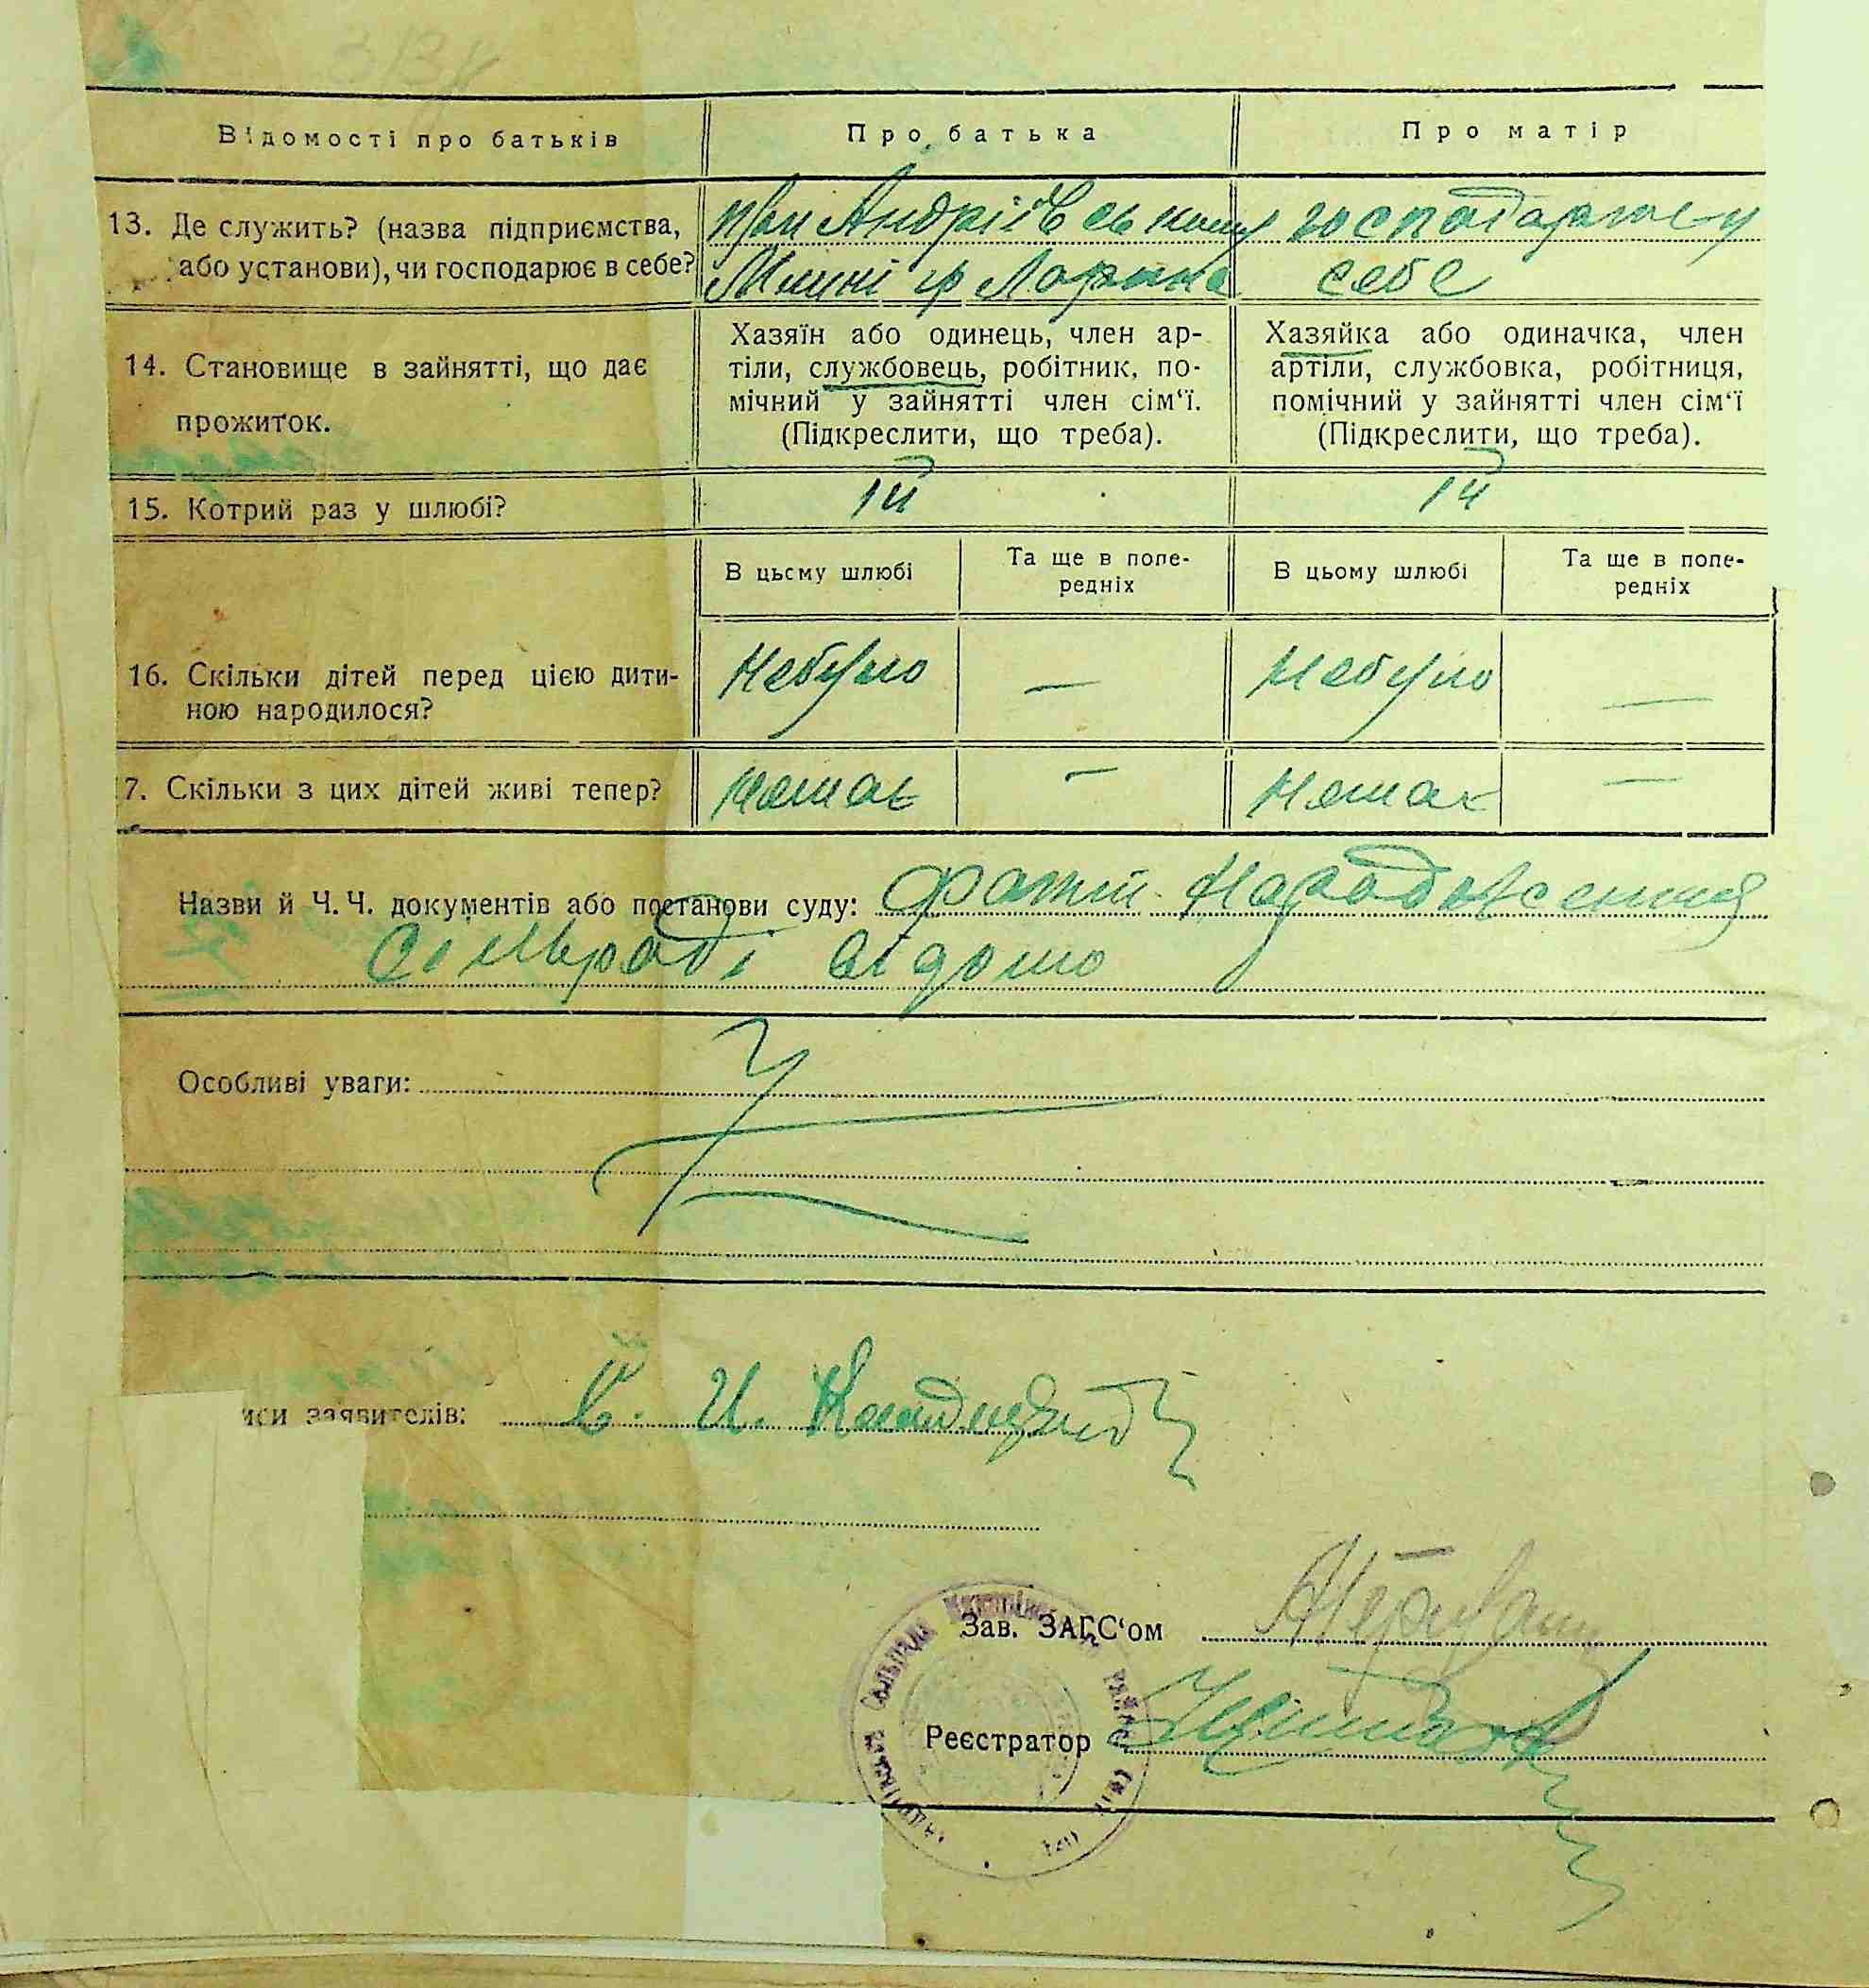 Відомості про батьків
Про батька
Про матір
13. Де служить? (назва підприємства,
або установи), чи господарює в себе?
при Андріївському
Млині гр
господарює у
себе
14. Становище в зайнятті, що дає
прожиток.
Хазяїн або одинець, член ар-
тіли, службовець, робітник, по-
мічний у зайнятті член сім‘ї.
(Підкреслити, що треба).
Хазяйка або одиначка, член
артіли, службовка, робітниця,
помічний у зайнятті член сім‘ї
(Підкреслити, що треба).
15. Котрий раз у шлюбі?
1й
1й
В цьсму шлюбі
Та ще в попе-
редніх
В цьому шлюбі
Та ще в попе-
редніх
16. Скільки дітей перед цією дити-
ною народилося?
Небуло
—
Небуло
—
7. Скільки з цих дітей живі тепер?
Немає
—
Немає
—
Назви й Ч. Ч. документів або постанови суду: Факт народження
сільраді відомо
Особливі уваги:
иси заявителів:
Зав. ЗАГС‘ом
Реєстратор